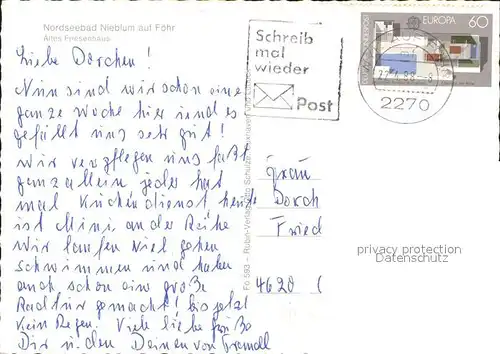 Nordseebad Nieblum auf Föhr
Altes Friesenhaus
Liebe Dorchen!
Nun sind wir schon eine
ganze Woche hier und es
gefällt uns sehr gut!
Wir verpflegen uns fast
ganz allein, jeder hat
mal Küchendienst heute
ist Mini an der Reihe
Wir laufen viel gehen
schwimmen und haben
auch schon eine große
Radtur gemacht! bis jetzt
kein Regen. Viele liebe Grüße
Dir u. den Deinen von
Schreib
mal
wieder
Post
EUROPA 60
2270
Frau
Dorch
Fried
4630
Fö 593 – Rubin-Verlag
privacy protection
Datenschutz